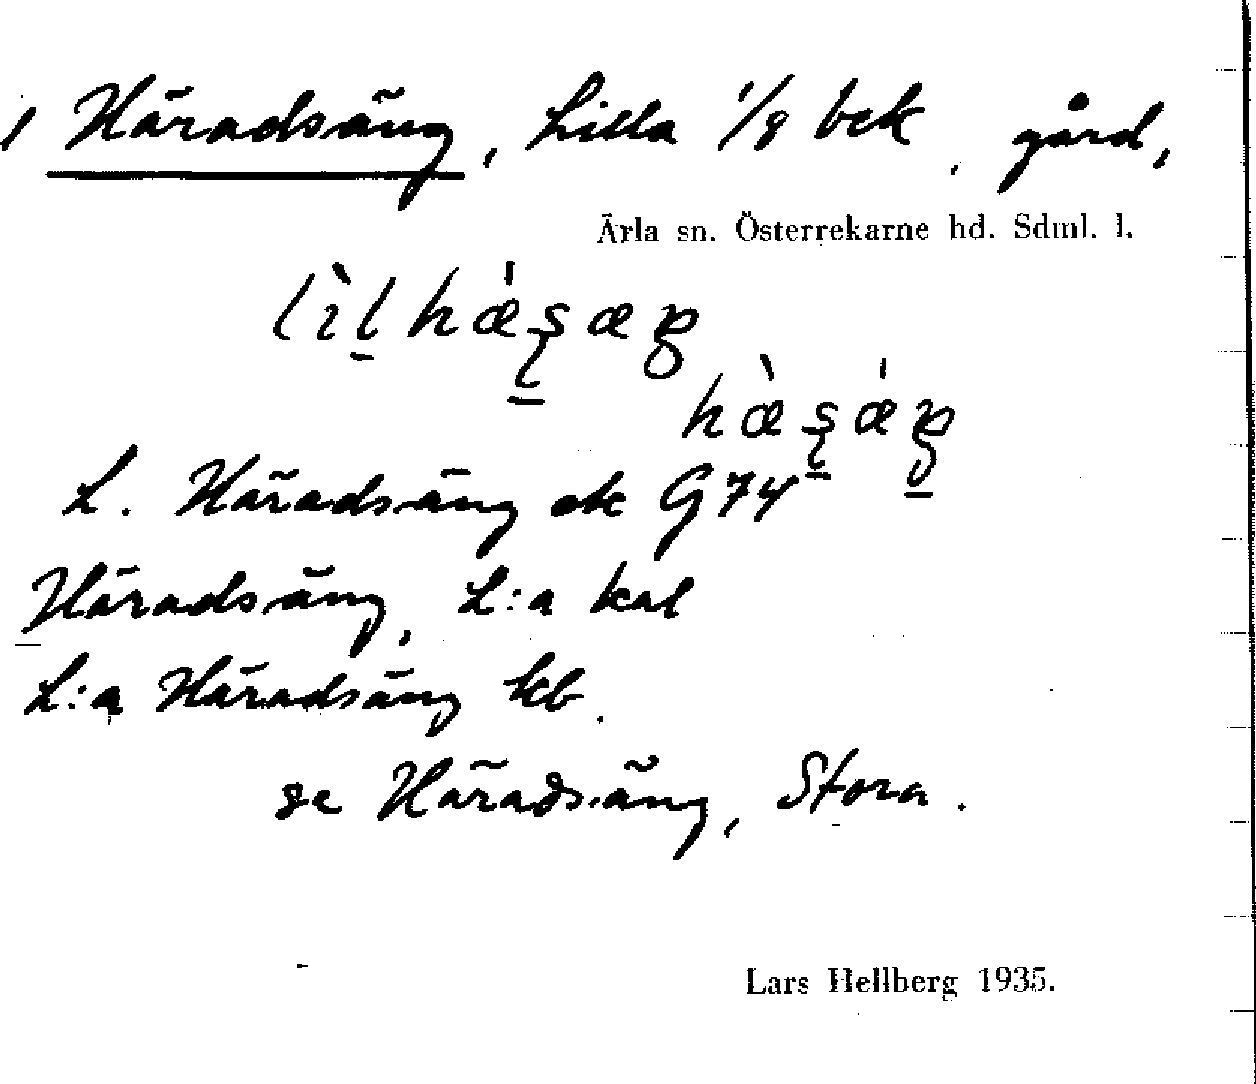 / Häradsäng, Lilla 1/8 bek, gård,
Ärla sn. Österrekarne hd. Sdml. l.
L. Häradsäng ek G74
Häradsäng, L:a kal
L:a Häradsäng kb
se Häradsäng, Stora.
Lars Hellberg 1935.